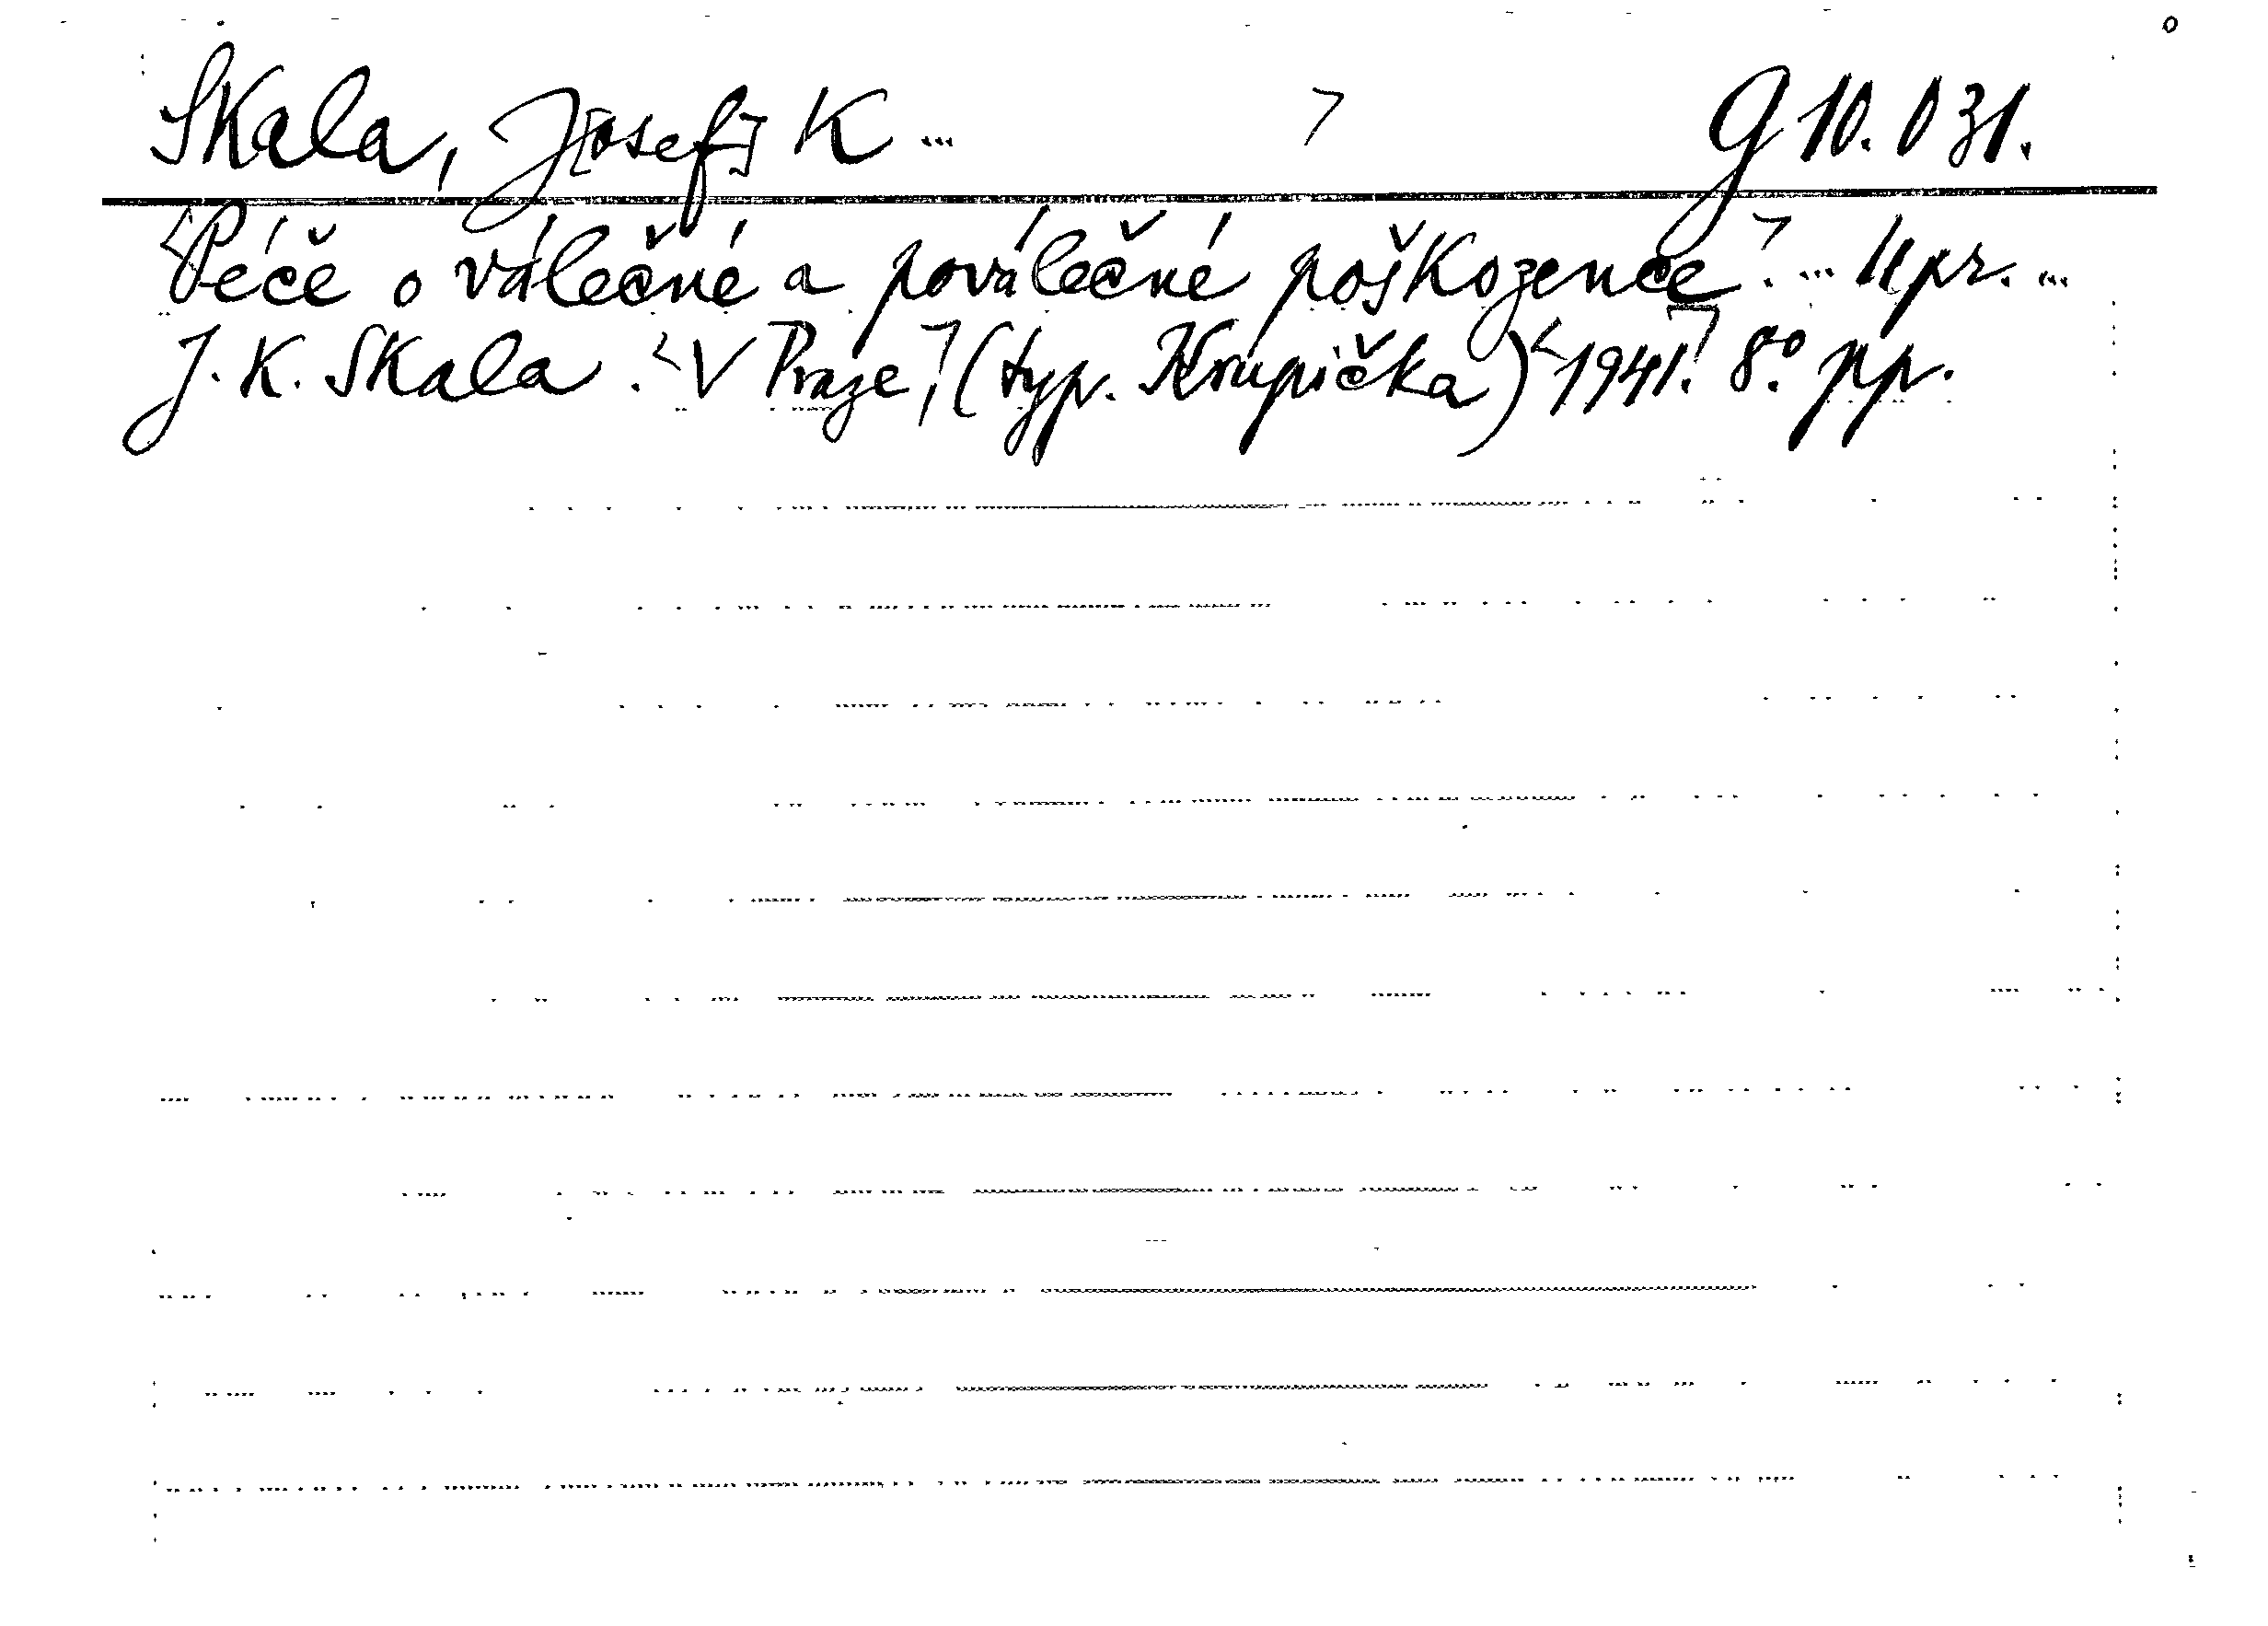 Skala, J[osef] K ... g 10.031.
Péče o válečné a poválečné poškozence. ... Upr. ...
J. K. Skala. V Praze, (typ. Krupička) 1941. 8.° pp.